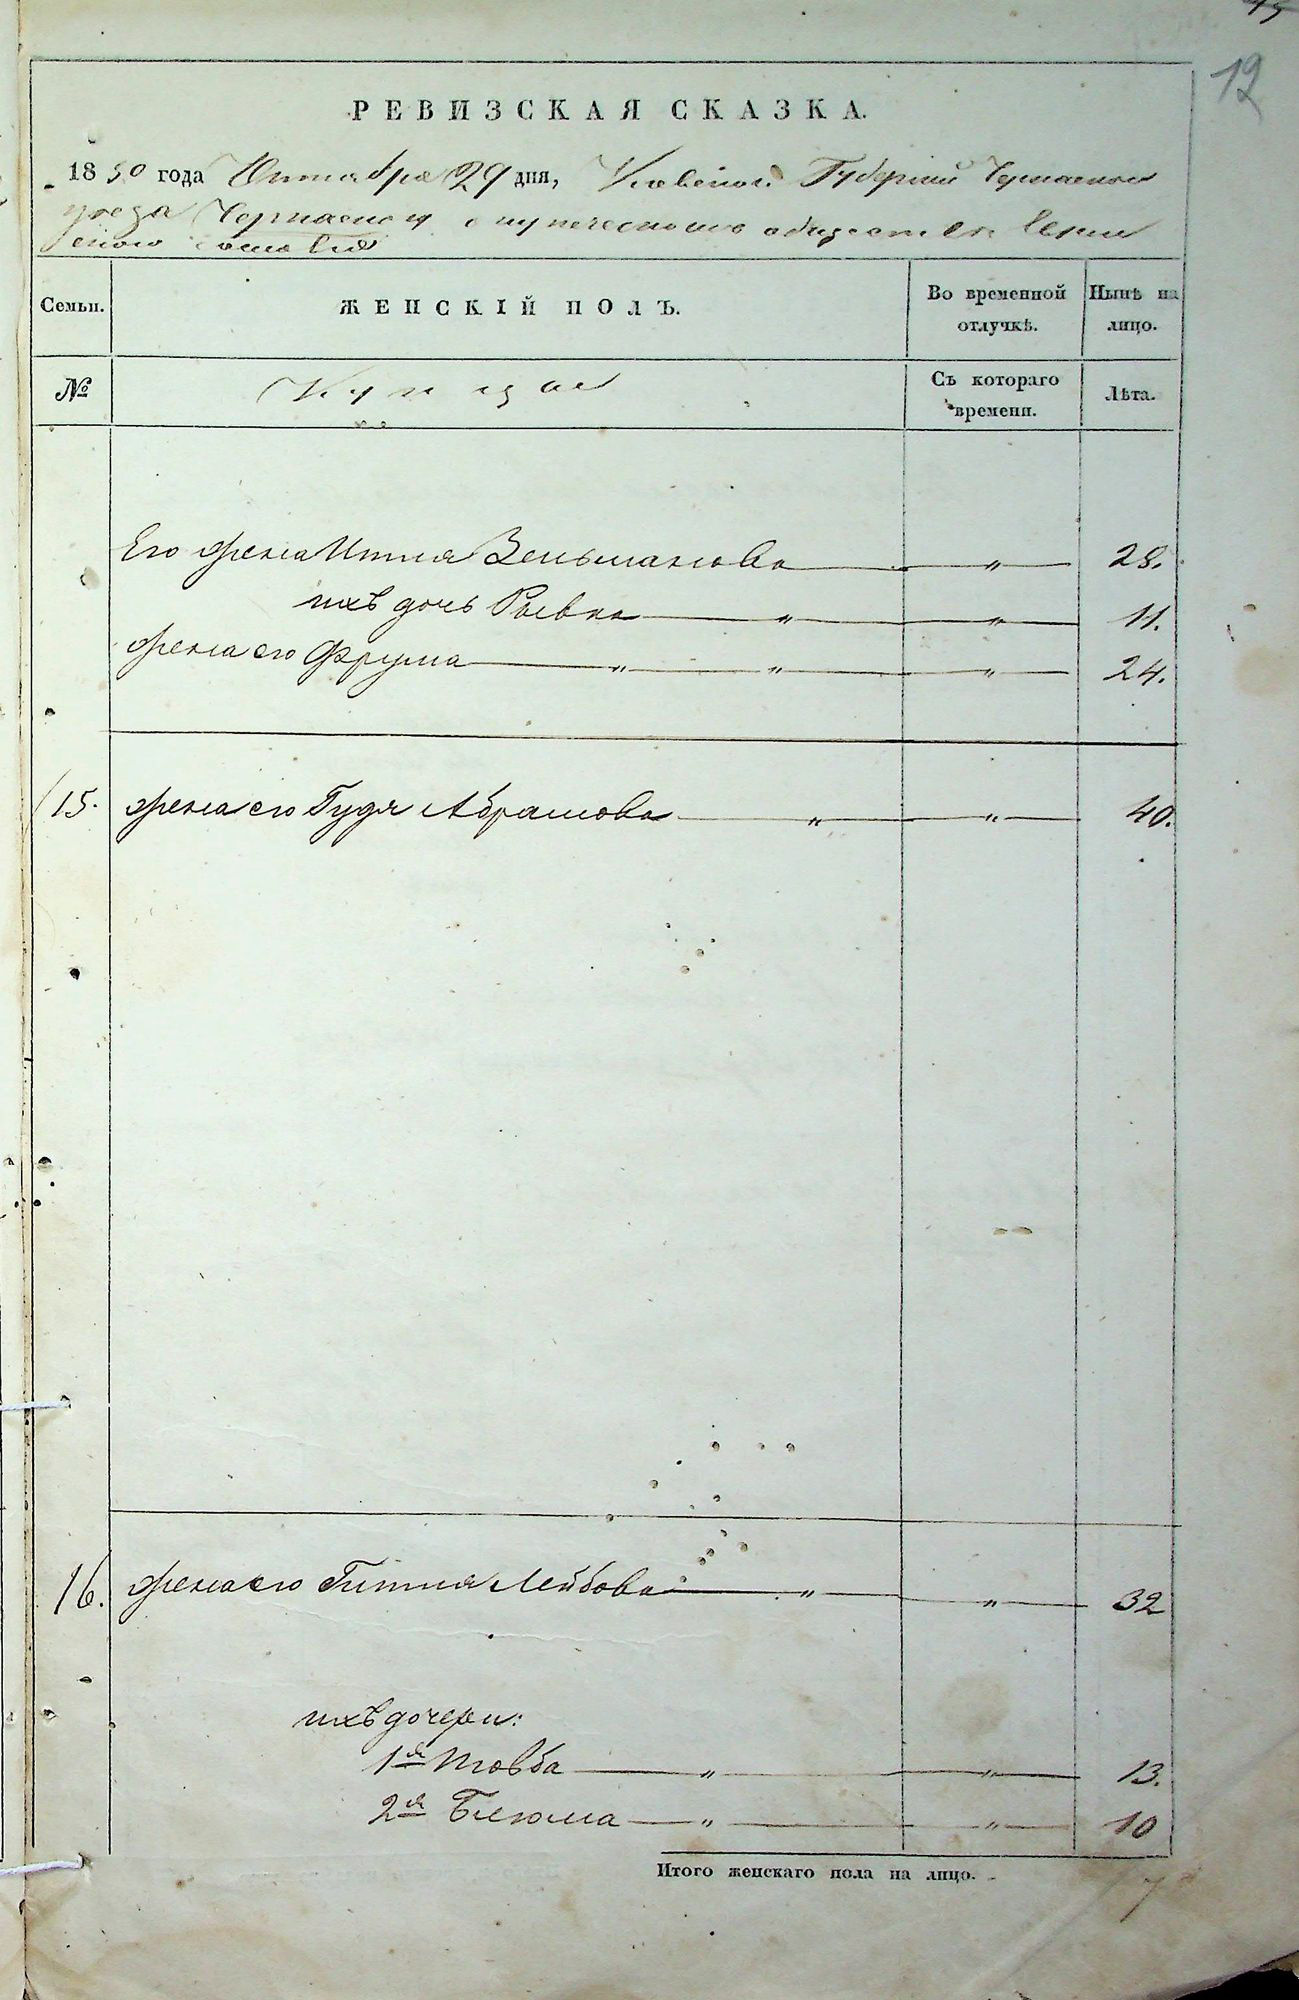 12
РЕВИЗСКАЯ СКАЗКА.
1850 года Октября 29 дня, Киевской Губернии Черкаского
уезда Черкаского купеческого общества Еврей
ского
Семьи. ЖЕНСКІЙ ПОЛЪ. Во временной отлучкѣ. Нынѣ на лицо.
№ Купцы Съ котораго времени. Лѣта.
Его жена Ития Зельманова " 28.
ихъ дочь Рывка " " 11.
жена его Фрума " " " 24.
15. жена его Гудя Абрамова " " 40.
16. жена его Гитля Лейбова " " 32
ихъ дочери:
1я Товба " " 13.
2я Блюма " " 10
Итого женскаго пола на лицо. 7